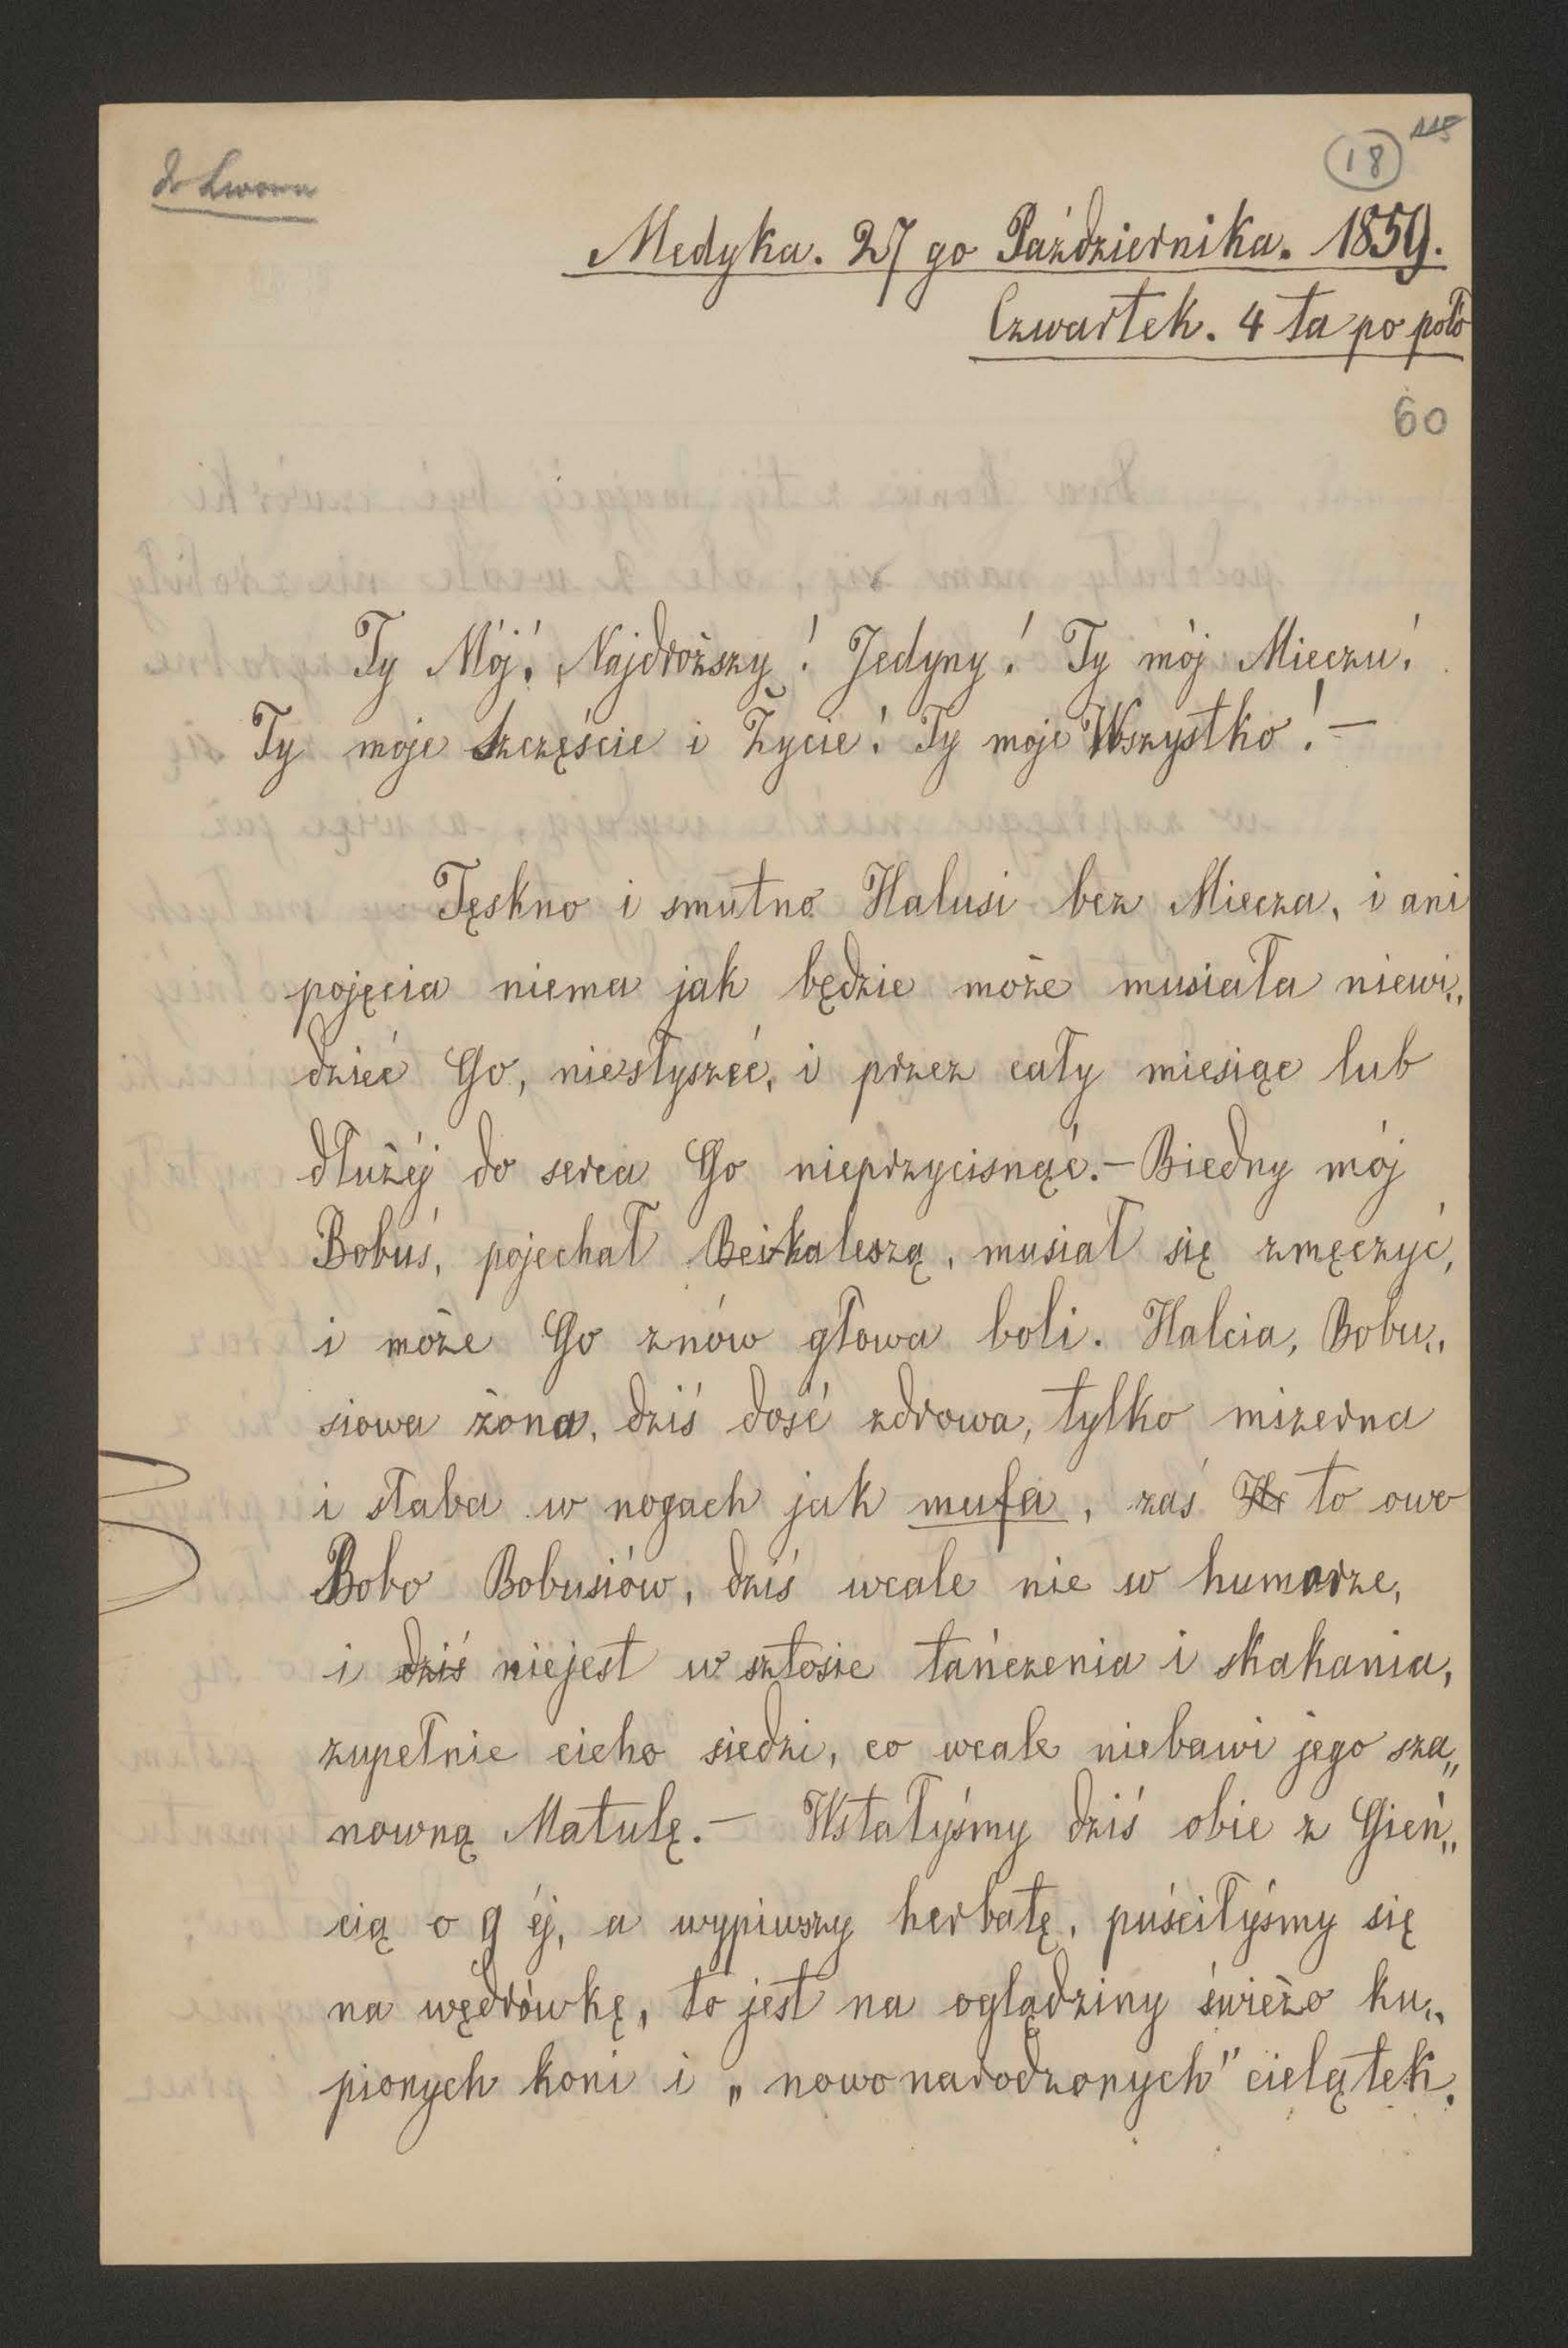 do Lwowa
18
115
Medyka. 27 go Października. 1859.
Czwartek. 4 ta po poło
60
Ty Mój! Najdroższy! Jedyny! Ty mój Mieczu!
Ty moje szczęście i Życie! Ty moje Wszystko! —
Tęskno i smutno Halusi bez Miecza, i ani
pojęcia niema jak będzie może musiała niewi„
dzieć Go, niesłyszéć, i przez cały miesiąc lub
dłużéj do serca Go nieprzycisnąć. — Biedny mój
Bobuś, pojechał Beitkaleszą, musiał się zmęczyć,
i może Go znów głowa boli. Halcia, Bobu„
siowa żona, dziś dość zdrowa, tylko mizerna
i słaba w nogach jak mufa, zaś to owo
Bobo Bobusiów, dziś wcale nie w humorze,
i dziś niejest w sztosie tańczenia i skakania,
zupełnie cicho siedzi, co wcale niebawi jego sza„
nowną Matulę. — Wstałyśmy dziś obie z Gień„
cią o 9 éj, a wypiwszy herbatę, puściłyśmy się
na wędrówkę, to jest na oglądziny świeżo ku„
pionych koni i „nowonarodzonych" cielątek.